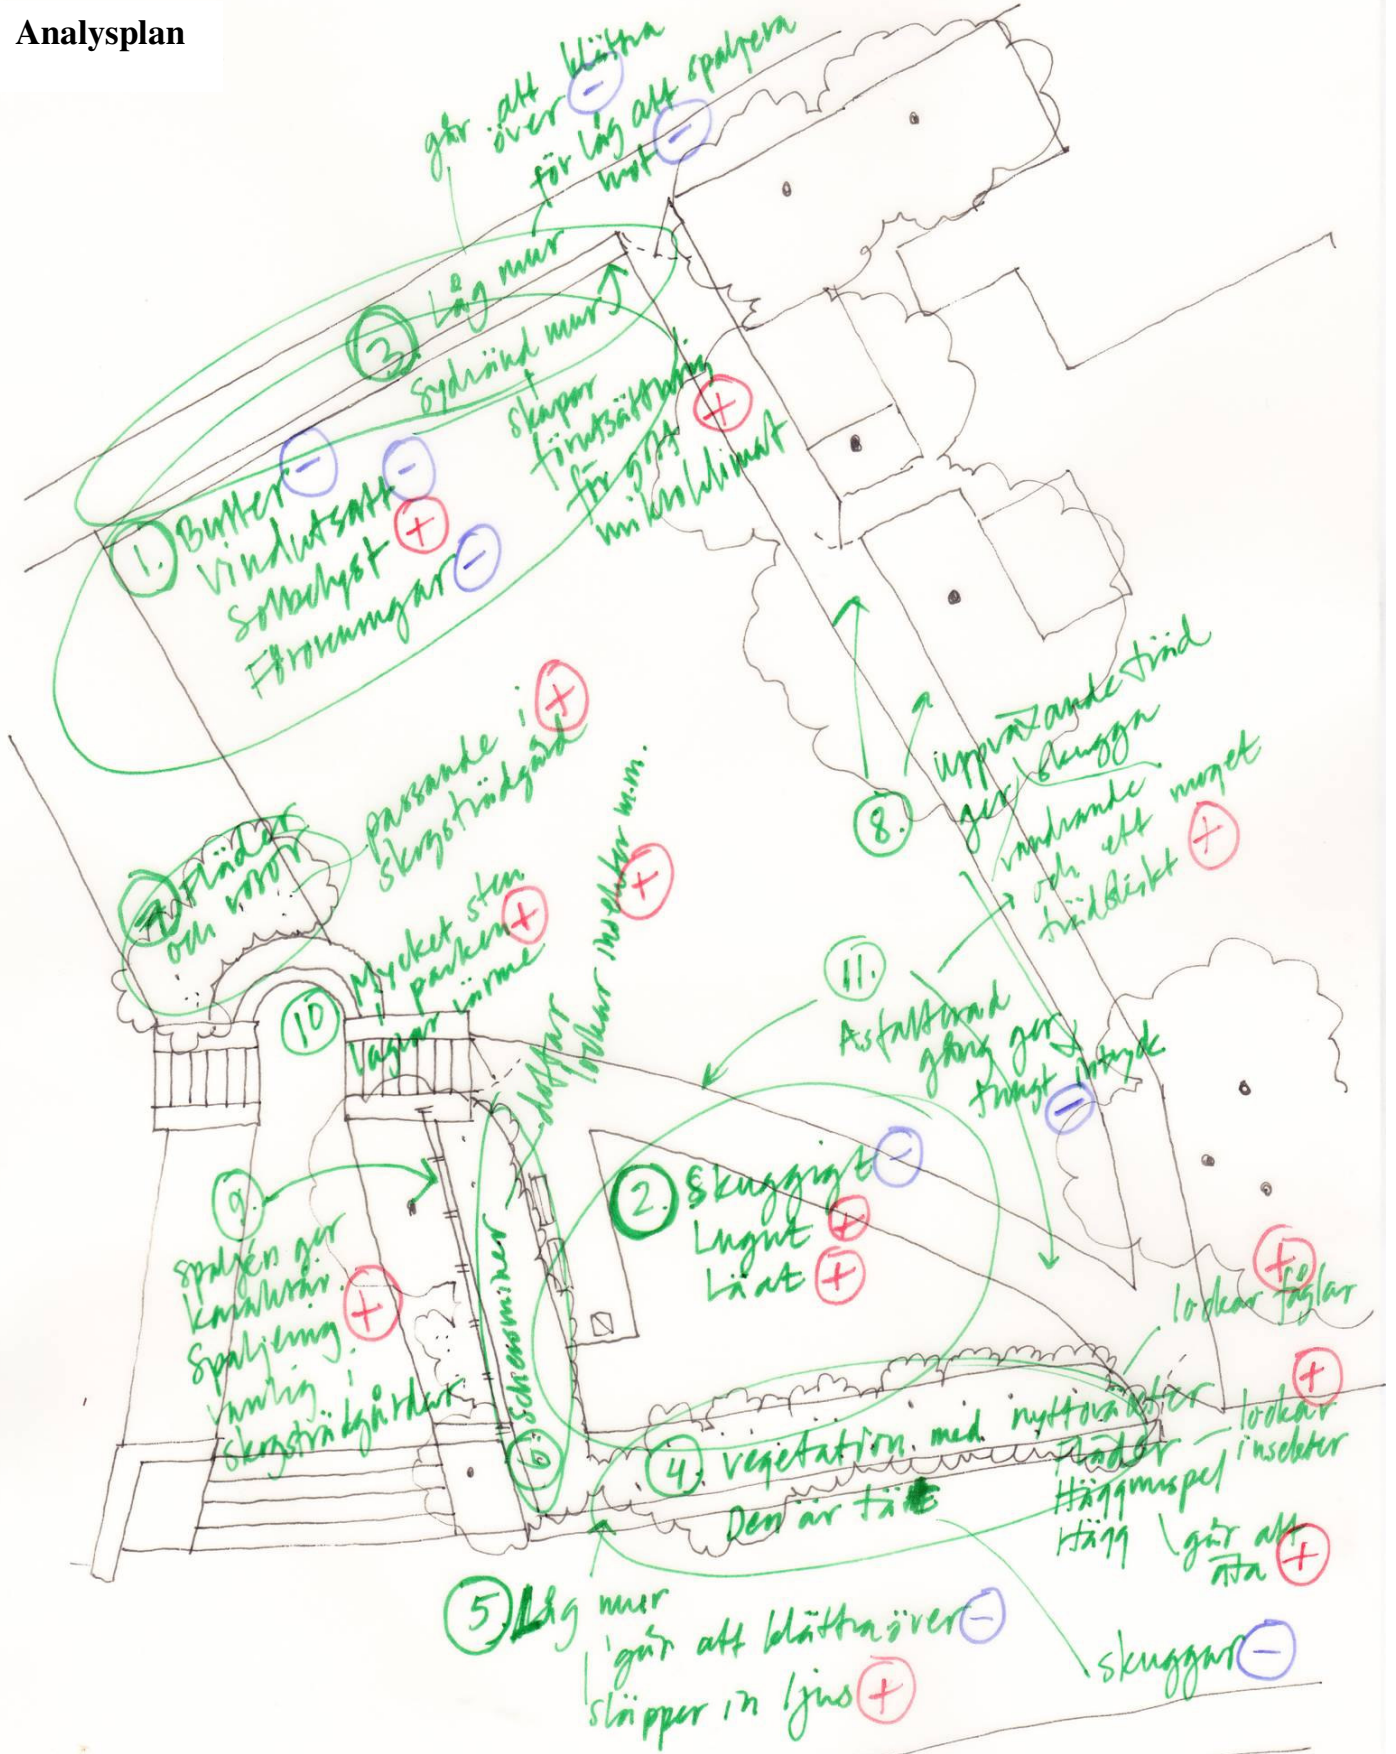 Analysplan
går att klättra
över −
för låg att spaljera
mot −
3. Låg mur
Sydvänd mur
skapar
förutsättning
för gott +
mikroklimat
1. Buller −
vindutsatt −
Solbelyst +
Föroreningar −
passande i +
skogsträdgård
7. Fläder
och rosor
10 Mycket sten
i parken +
lagrar värme
doftar
lockar insekter m.m. +
8. uppväxande träd
ger skugga
vandrande
och ett moget
trädskikt +
11. Asfalterad
gång ger
tungt intryck −
2. Skuggigt −
Lugnt +
Lä at +
9. spaljén ger
karaktär. +
Spaljering
vanlig i
skogsträdgårdar
6 schersminer
4. vegetation med nyttoväxter
Den är tät
Fläder
Häggmispel
Hägg
lockar fåglar +
lockar +
insekter
går att
äta +
5. Låg mur
går att klättra över −
släpper in ljus +
skuggar −